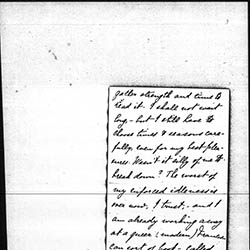 gather strength and time to
read it. I shall not want
long - but I still have to
choose times & seasons care-
fully, even for my best plea-
sures. Wasn't it silly of me to
break down? The worst of
my enforced idleness is
over now, I trust; and I
am already working away
at a queer (modern) Dramati
sort of book - called